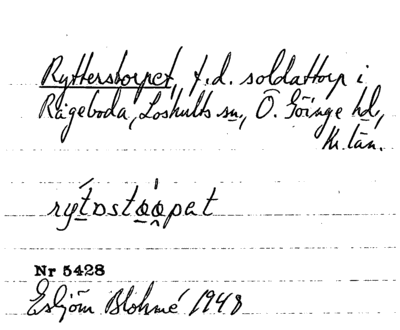 Rytterstorpet, f.d. soldattorp i
Rågeboda, Loshults sn, Ö. Göinge hd,
Kr. län.
rýtɒstɑ̀ɑ̯pət
Nr 5428
Esbjörn Blohmé 1948